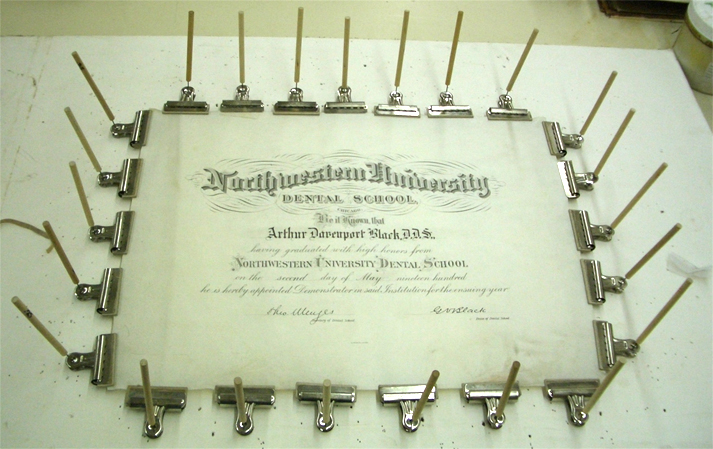 Northwestern University
DENTAL SCHOOL.
Be it Known, that
Arthur Davenport Black, D.D.S.,
having graduated with high honors from
NORTHWESTERN UNIVERSITY DENTAL SCHOOL
on the second day of May nineteen hundred
he is hereby appointed Demonstrator in said Institution for the ensuing year
G V Black